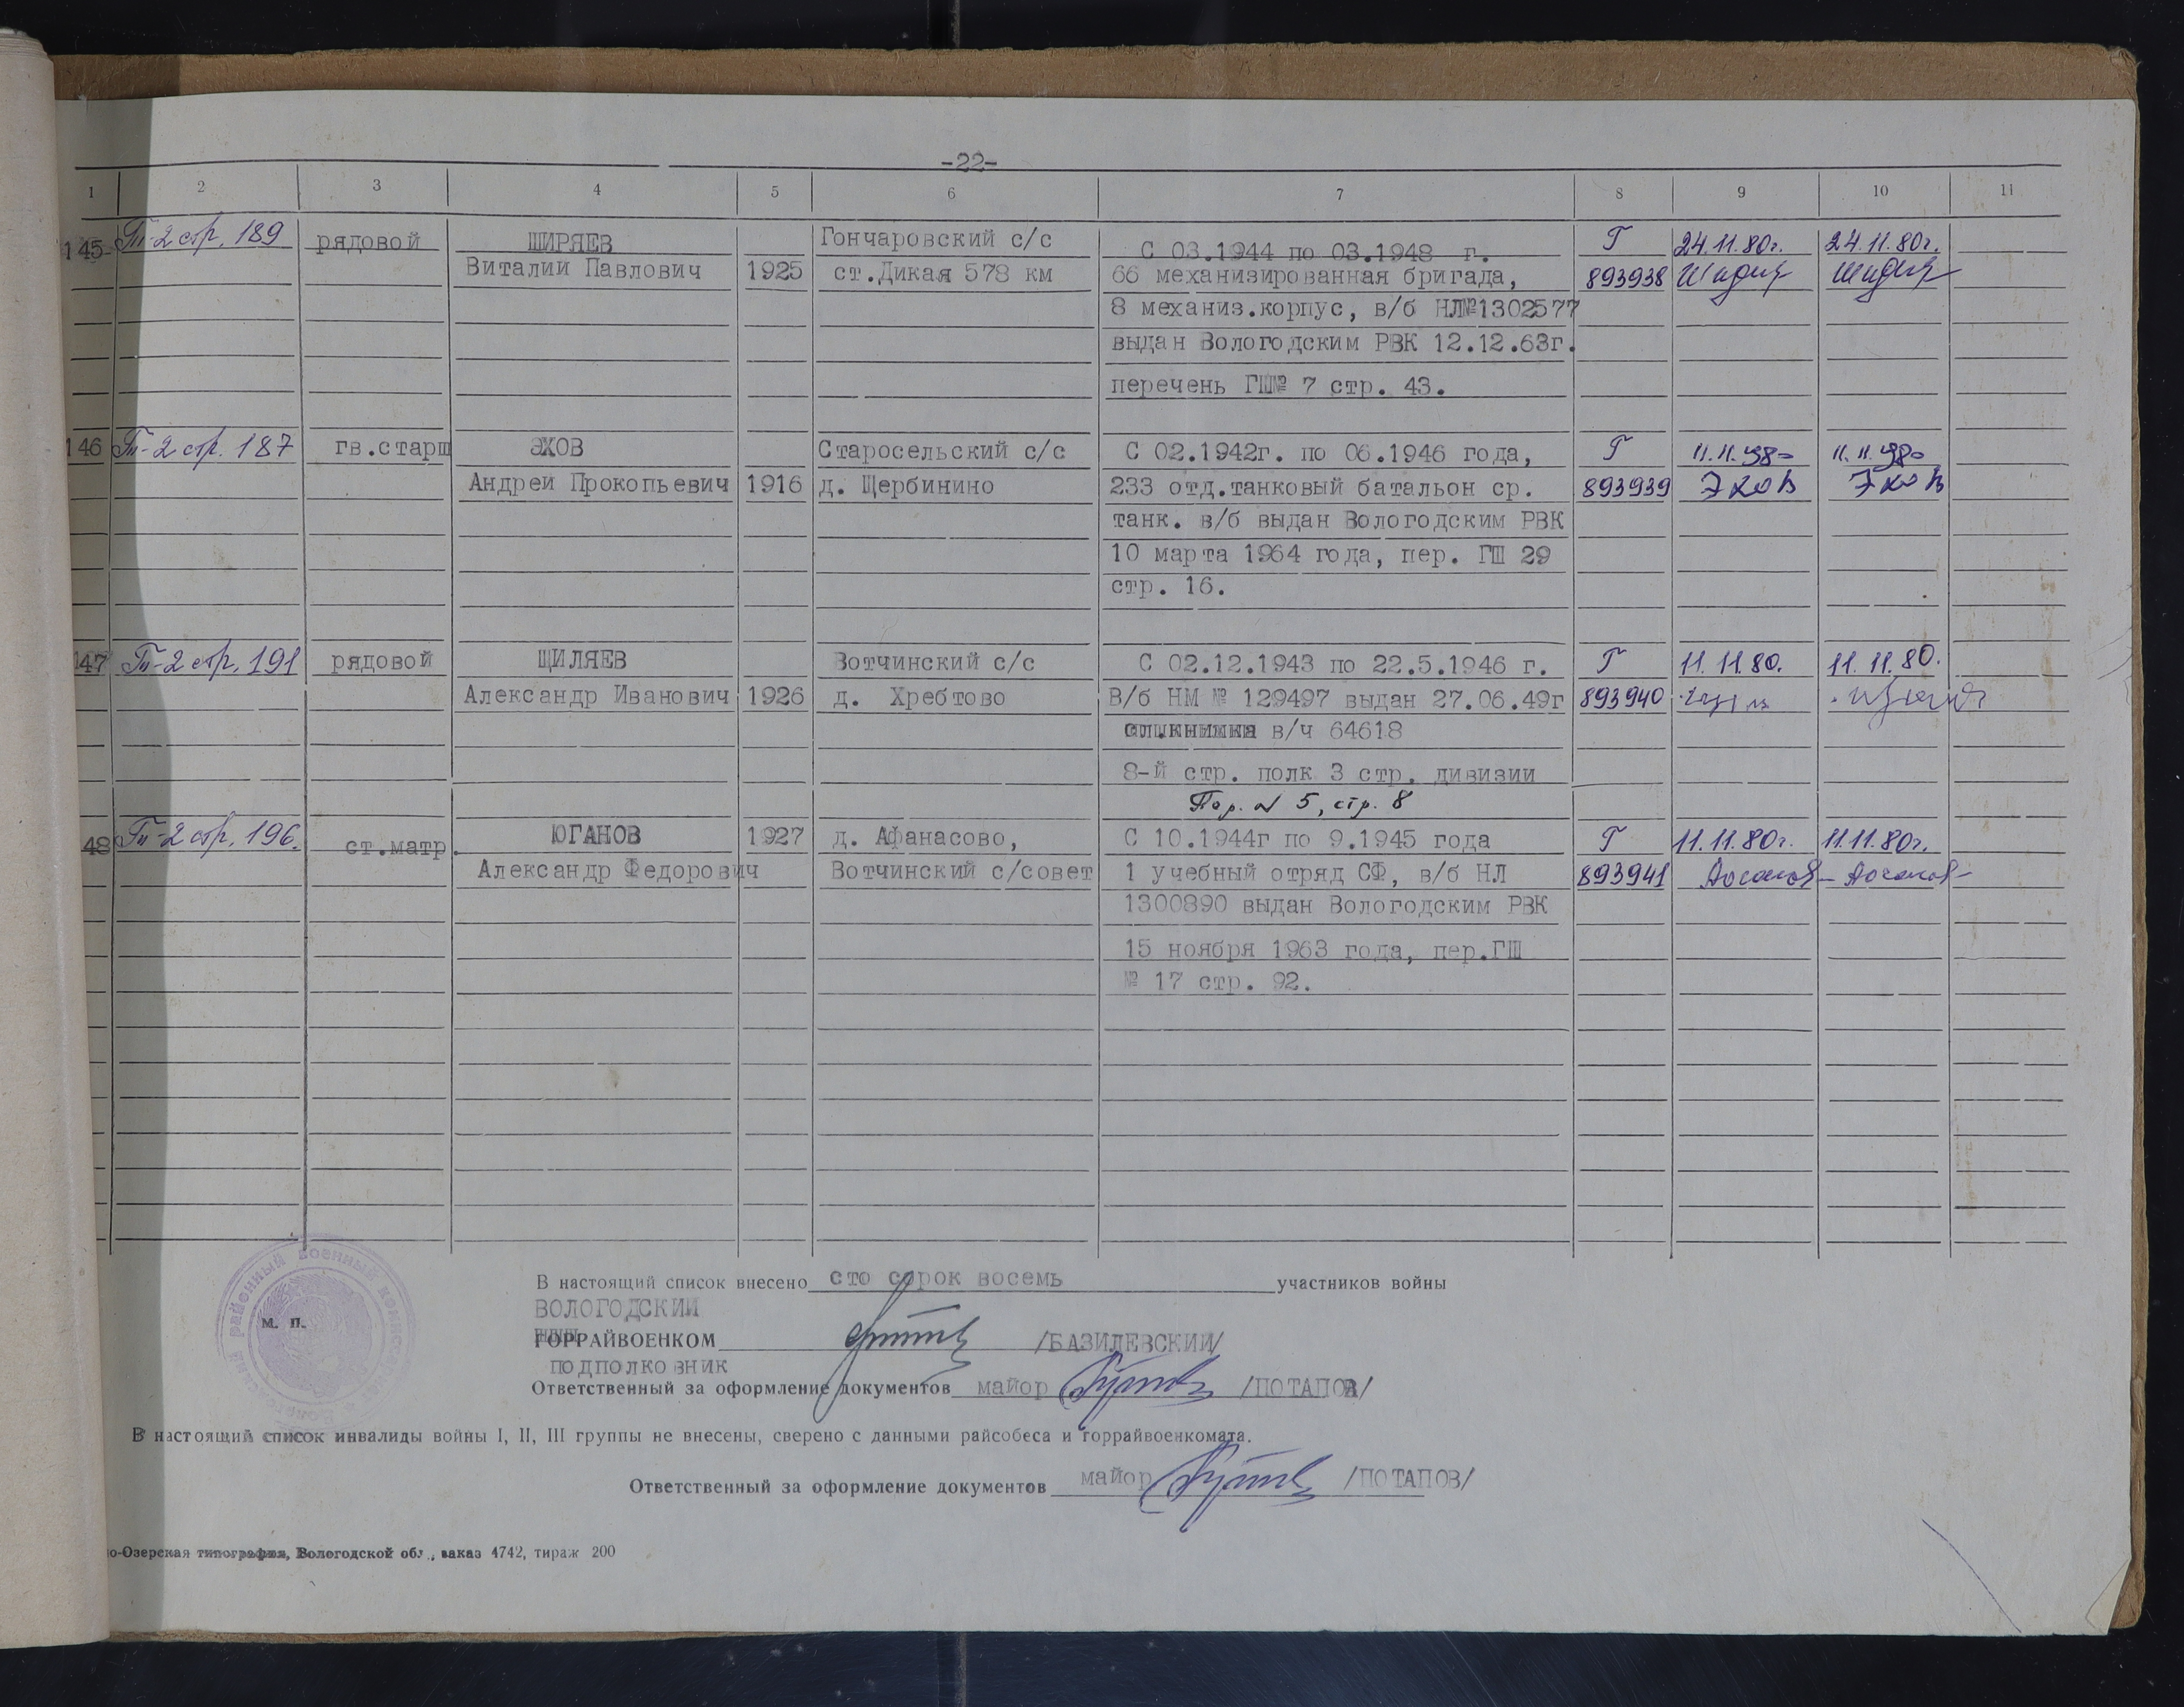 -22-
1 2 3 4 5 6 7 8 9 10 11
145 Гп-2 стр. 189 рядовой ШИРЯЕВ Гончаровский с/с С 03.1944 по 03.1948 г. Г 24.11.80г. 24.11.80г.
Виталий Павлович 1925 ст.Дикая 578 км 66 механизированная бригада, 893938
8 механиз.корпус, в/б НЛ№1302577
выдан Вологодским РВК 12.12.63г.
перечень ГШ№ 7 стр. 43.
146 Гп-2 стр. 187 гв.старш ЭХОВ Старосельский с/с С 02.1942г. по 06.1946 года, Г 11.11.80 11.11.80
Андрей Прокопьевич 1916 д. Щербинино 233 отд.танковый батальон ср. 893939 Эхов Эхов
танк. в/б выдан Вологодским РВК
10 марта 1964 года, пер. ГШ 29
стр. 16.
147 Гп-2 стр. 191 рядовой ЩИЛЯЕВ Вотчинский с/с С 02.12.1943 по 22.5.1946 г. Г 11.11.80. 11.11.80.
Александр Иванович 1926 д. Хребтово В/б НМ № 129497 выдан 27.06.49г 893940
в/ч 64618
8-й стр. полк 3 стр. дивизии
Пер. № 5, стр. 8
48 Гп-2 стр. 196. ст.матр. ЮГАНОВ 1927 д. Афанасово, С 10.1944г по 9.1945 года Г 11.11.80г. 11.11.80г.
Александр Федорович Вотчинский с/совет 1 учебный отряд СФ, в/б НЛ 893941
1300890 выдан Вологодским РВК
15 ноября 1963 года, пер.ГШ
№ 17 стр. 92.
В настоящий список внесено сто сорок восемь участников войны
ВОЛОГОДСКИЙ
М. П.
ГОРРАЙВОЕНКОМ /БАЗИЛЕВСКИЙ/
ПОДПОЛКОВНИК
Ответственный за оформление документов майор /ПОТАПОВ/
В настоящий список инвалиды войны I, II, III группы не внесены, сверено с данными райсобеса и горрайвоенкомата.
Ответственный за оформление документов майор /ПОТАПОВ/
о-Озерская типография, Вологодской обл., заказ 4742, тираж 200